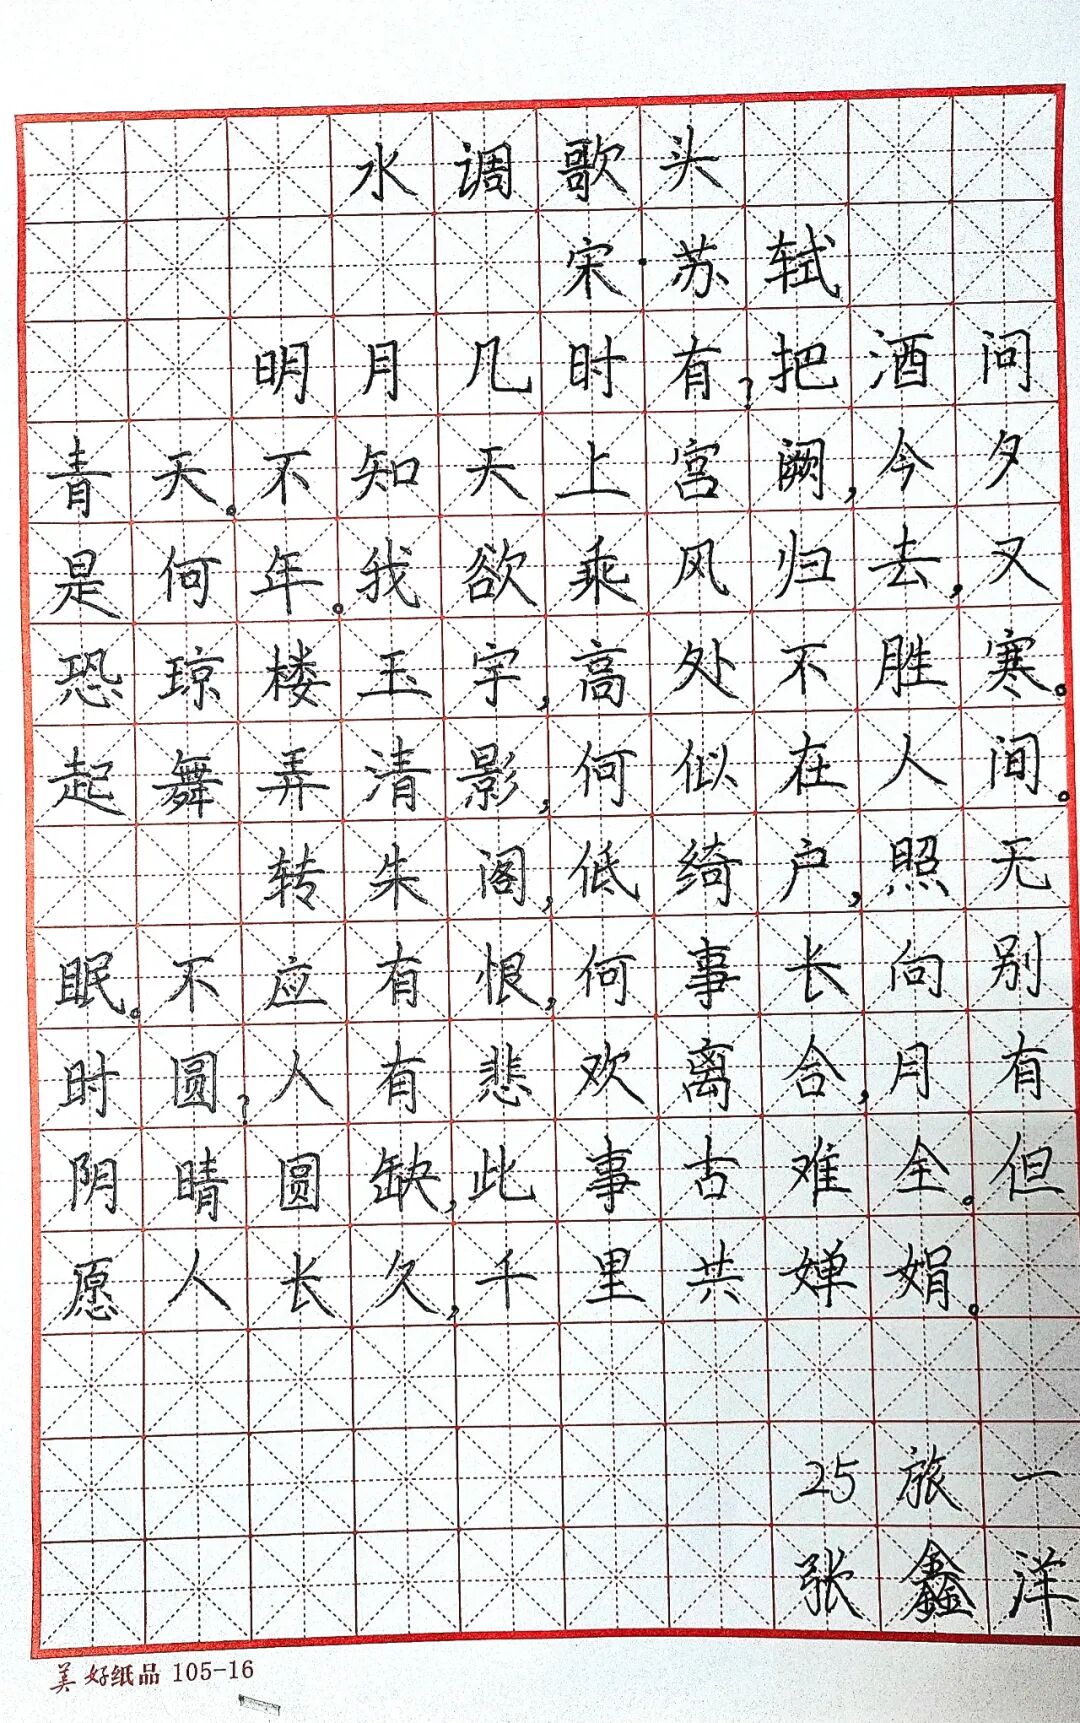 水调歌头
宋·苏轼
明月几时有?把酒问
青天。不知天上宫阙,今夕
是何年。我欲乘风归去,又
恐琼楼玉宇,高处不胜寒。
起舞弄清影,何似在人间。
转朱阁,低绮户,照无
眠。不应有恨,何事长向别
时圆?人有悲欢离合,月有
阴晴圆缺,此事古难全。但
愿人长久,千里共婵娟。
25旅一
张鑫洋
美好纸品 105-16